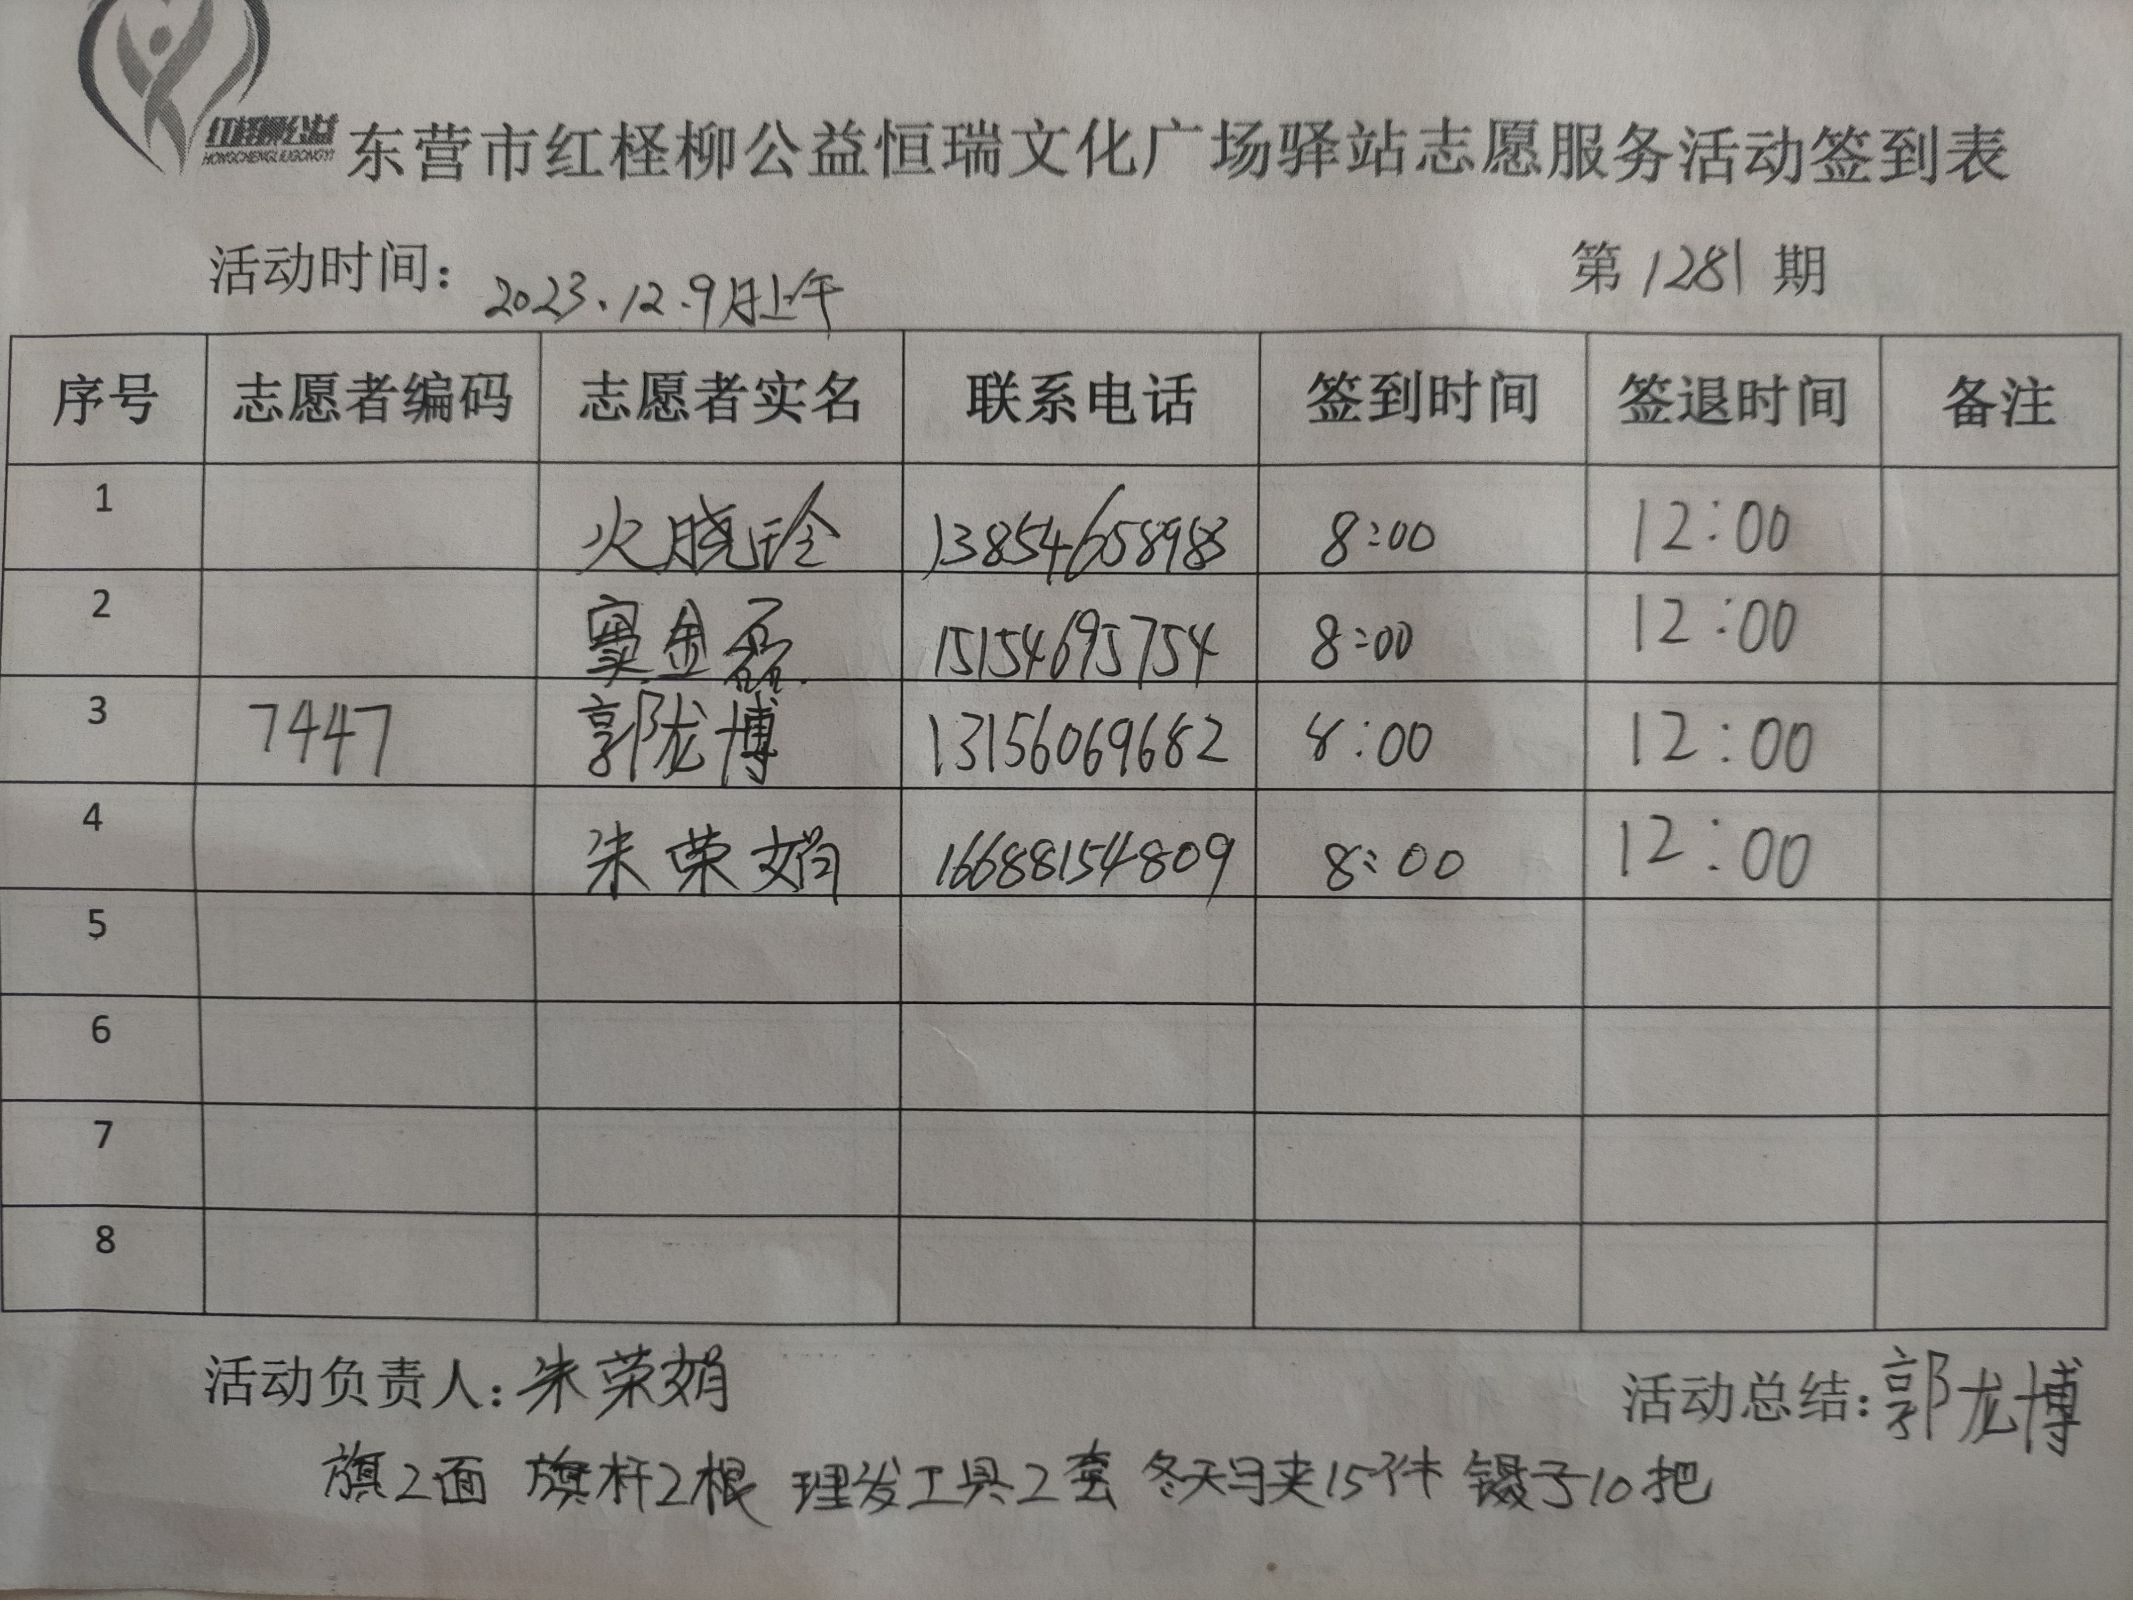 红柽柳公益
HONGCHENGLIUGONGYI
东营市红柽柳公益恒瑞文化广场驿站志愿服务活动签到表
活动时间：2023.12.9日上午 第1281期
序号 志愿者编码 志愿者实名 联系电话 签到时间 签退时间 备注
1 火晓玲 13854658983 8:00 12:00
2 窦金磊 15154695754 8:00 12:00
3 7447 郭龙博 13156069682 8:00 12:00
4 朱荣娟 16688154809 8:00 12:00
5
6
7
8
活动负责人：朱荣娟 活动总结：郭龙博
旗2面 旗杆2根 理发工具2套 冬天马夹15件 镊子10把